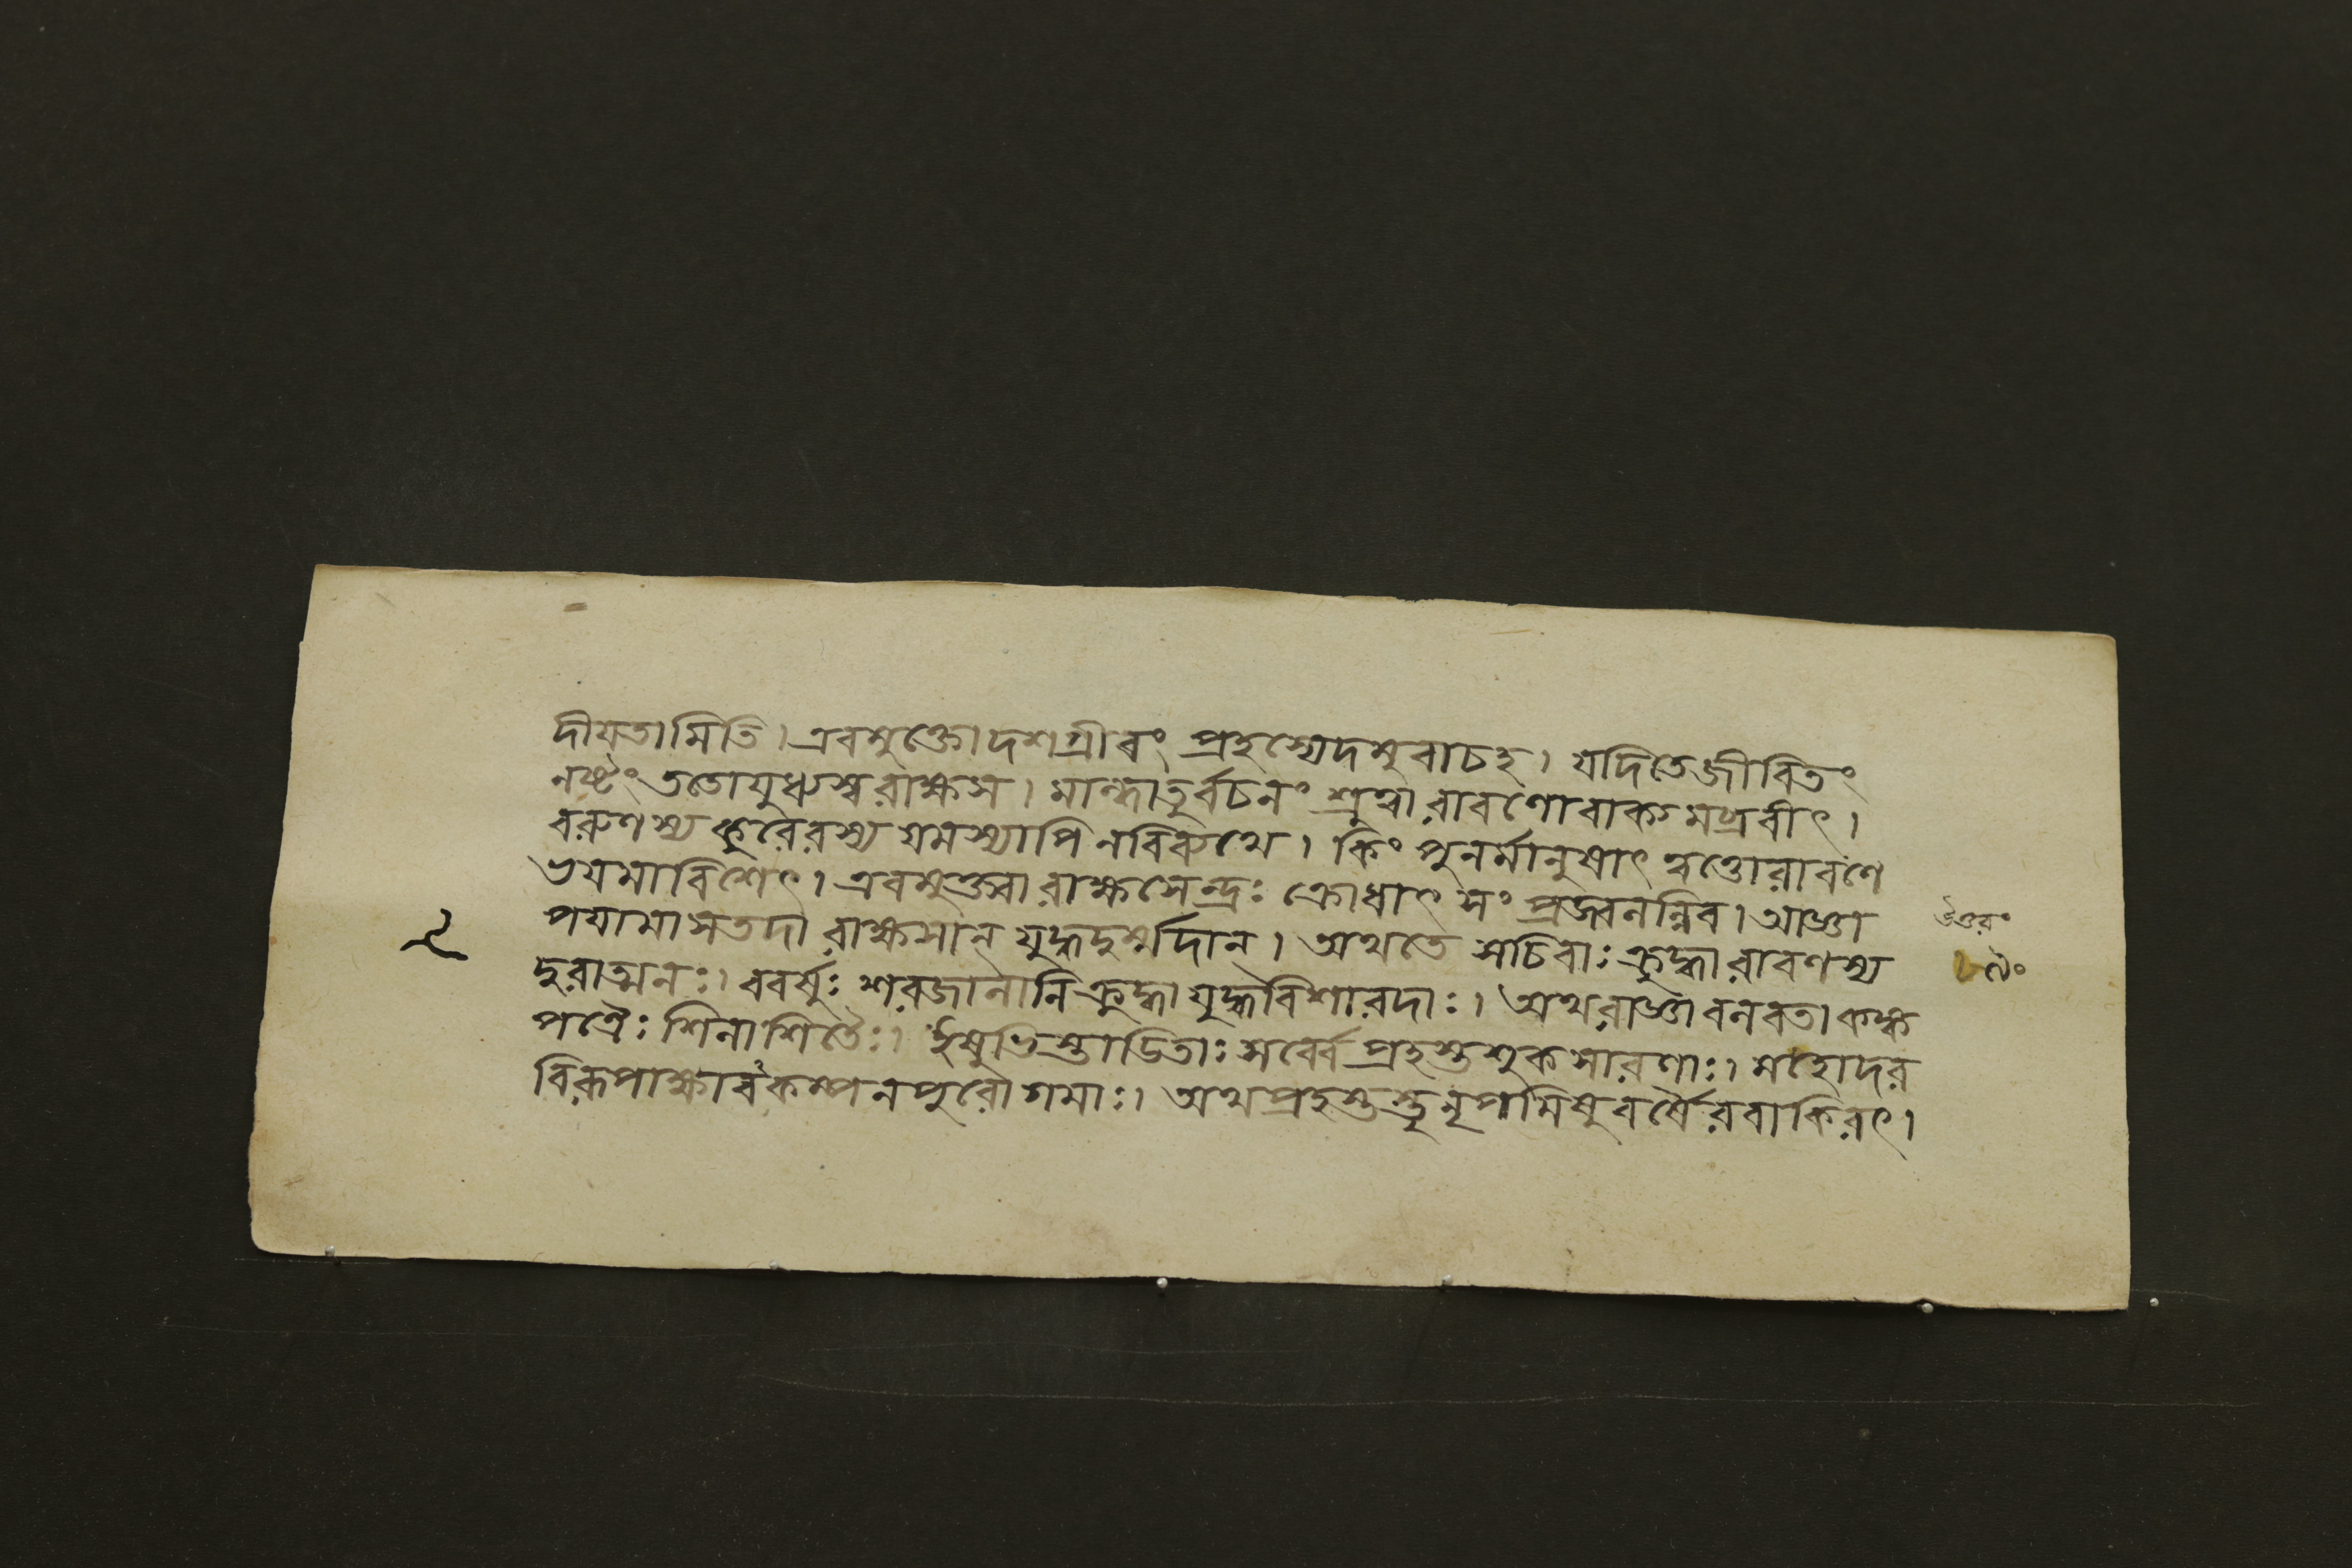 দীয়তামিতি। এবমুক্তোদশগ্রীবং প্রহস্যেদমুবাচহ। যদিতেজীবিতং
নষ্টং ততোযুধ্যস্বরাক্ষস। মান্ধাতুর্বচনং শ্রুত্বা রাবণোবাক্যমব্রবীৎ।
বরুণস্য কুবেরস্য যমস্যাপি নবিব্যথে। কিং পুনর্মানুষাৎ ত্বত্তোরাবণো
ভয়মাবিশেৎ। এবমুক্ত্বা রাক্ষসেন্দ্রঃ ক্রোধাৎ সং প্রজ্বলন্নিব। আজ্ঞা
পয়ামাসতদা রাক্ষসান্ যুদ্ধদুর্ম্মদান্। অথতে সচিবাঃ ক্রুদ্ধা রাবণস্য
দুরাত্মনঃ। ববর্ষুঃ শরজালানি ক্রুদ্ধা যুদ্ধবিশারদাঃ। অথরাজ্ঞাবলবতা কঙ্ক
পত্রৈঃ শিলাশিতৈঃ। ইষুভিস্তাডিতাঃ সর্ব্বে প্রহস্তশুকসারণাঃ। মহোদর
বিরূপাক্ষাবকম্পনপুরোগমাঃ। অথপ্রহস্তস্তু নৃপমিষুবর্ষৈরবাকিরৎ।